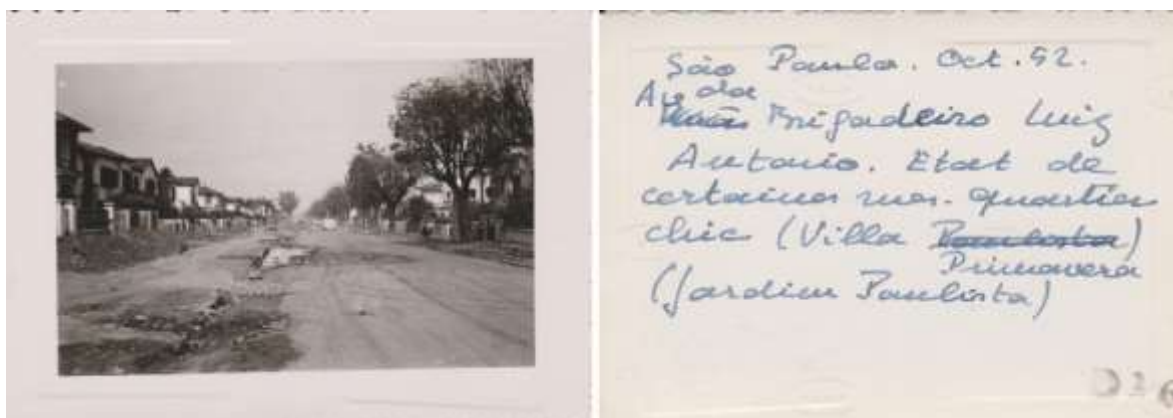 São Paulo. Oct. 52.
Avda
Brigadeiro Luiz
Antonio. Etat de
certaines rues. Quartier
chic (Villa Paulista)
Primavera
(Jardim Paulista)